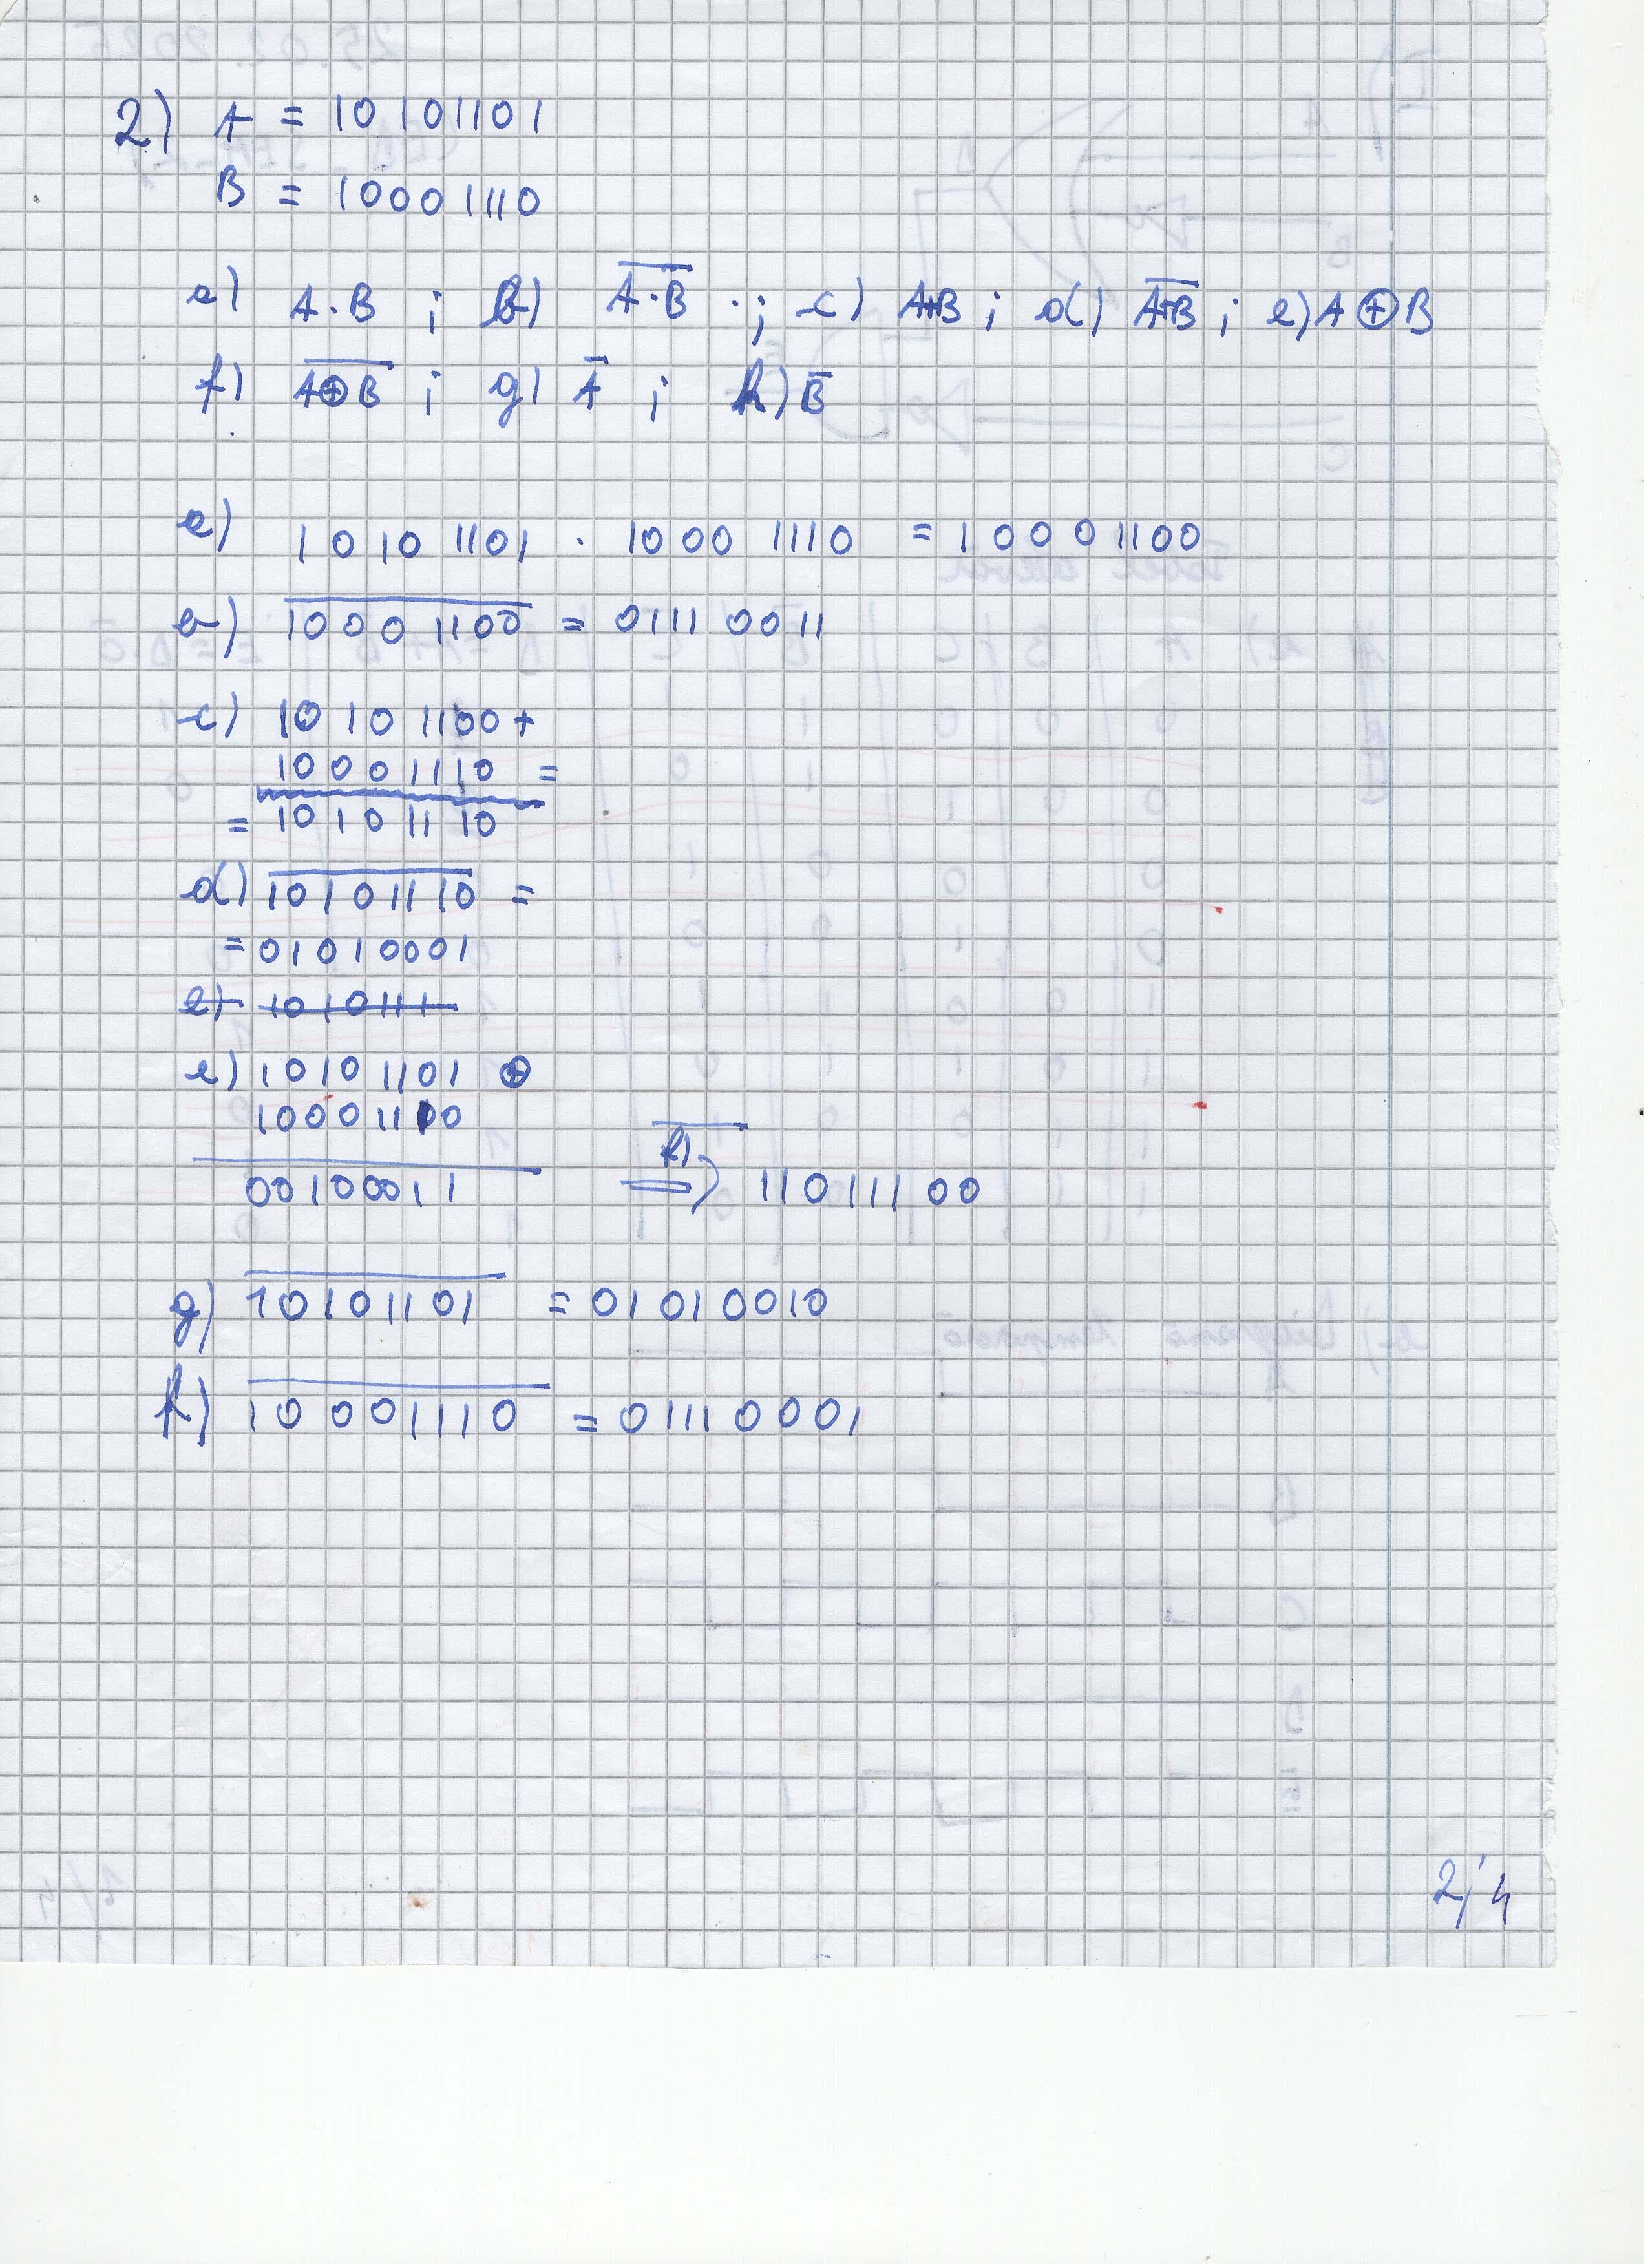 2) A = 10101101
B = 10001110
a) A·B ; b) A̅·̅B̅ ; c) A+B ; d) A̅+̅B̅ ; e) A⊕B
f) A̅⊕̅B̅ ; g) A̅ ; h) B̅
a) 1010 1101 · 1000 1110 = 1000 1100
b) 1̅0̅0̅0̅ 1̅1̅0̅0̅ = 0111 0011
c) 1010 1100 +
1000 1110 =
= 1010 1110
d) 1̅0̅1̅0̅1̅1̅1̅0̅ =
= 01010001
e) 1010111
e) 10101101 ⊕
10001110
00100011 f) => 11011100
g) 1̅0̅1̅0̅1̅1̅0̅1̅ = 01010010
h) 1̅0̅0̅0̅1̅1̅1̅0̅ = 01110001
2/4